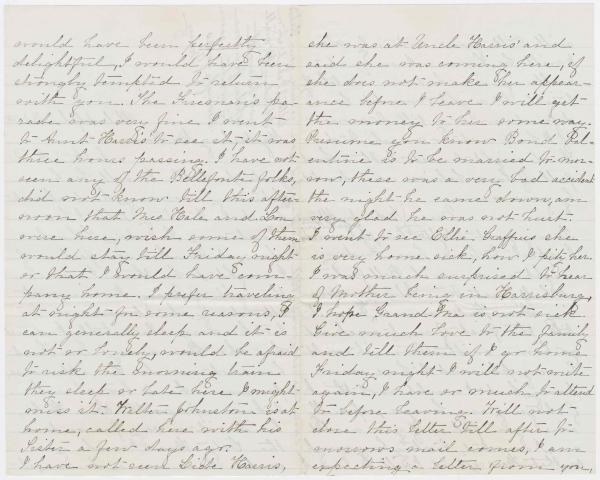 would have been perfectly
delightful, I would have been
strongly tempted to return
with you. The Fireman's pa-
rade was very fine I went
to Aunt Harris' to see it, it was
three hours passing. I have not
seen any of the Bellefonte folks,
did not know till this after-
noon that Mrs Hale and Lou
were here, wish some of them
would stay till Friday night
or that I would have com-
pany home. I prefer traveling
at night for some reasons, I
can generally sleep and it is
not so lonely, would be afraid
to risk the morning train
they sleep so late here I might
miss it. Johnston is at
home, called here with his
Sister a few days ago.
I have not seen Harris,
she was at Uncle Harris' and
said she was coming here, if
she does not make her appear-
ance before I leave I will get
the money to her some way.
Presume you know Bond Val-
entine is to be married to mor-
row, there was a very bad accident
the night he came down, am
very glad he was not hurt.
I went to see Ellie she
is very home sick, how I pity her.
I was much surprised to hear
of Mother being in Harrisburg,
I hope Grand Ma is not sick
Give much love to the family
and tell them if I go home
Friday night I will not write
again, I have so much to attend
to before leaving. Will not
close this letter till after to
morrows mail comes, I am
expecting a letter from you,